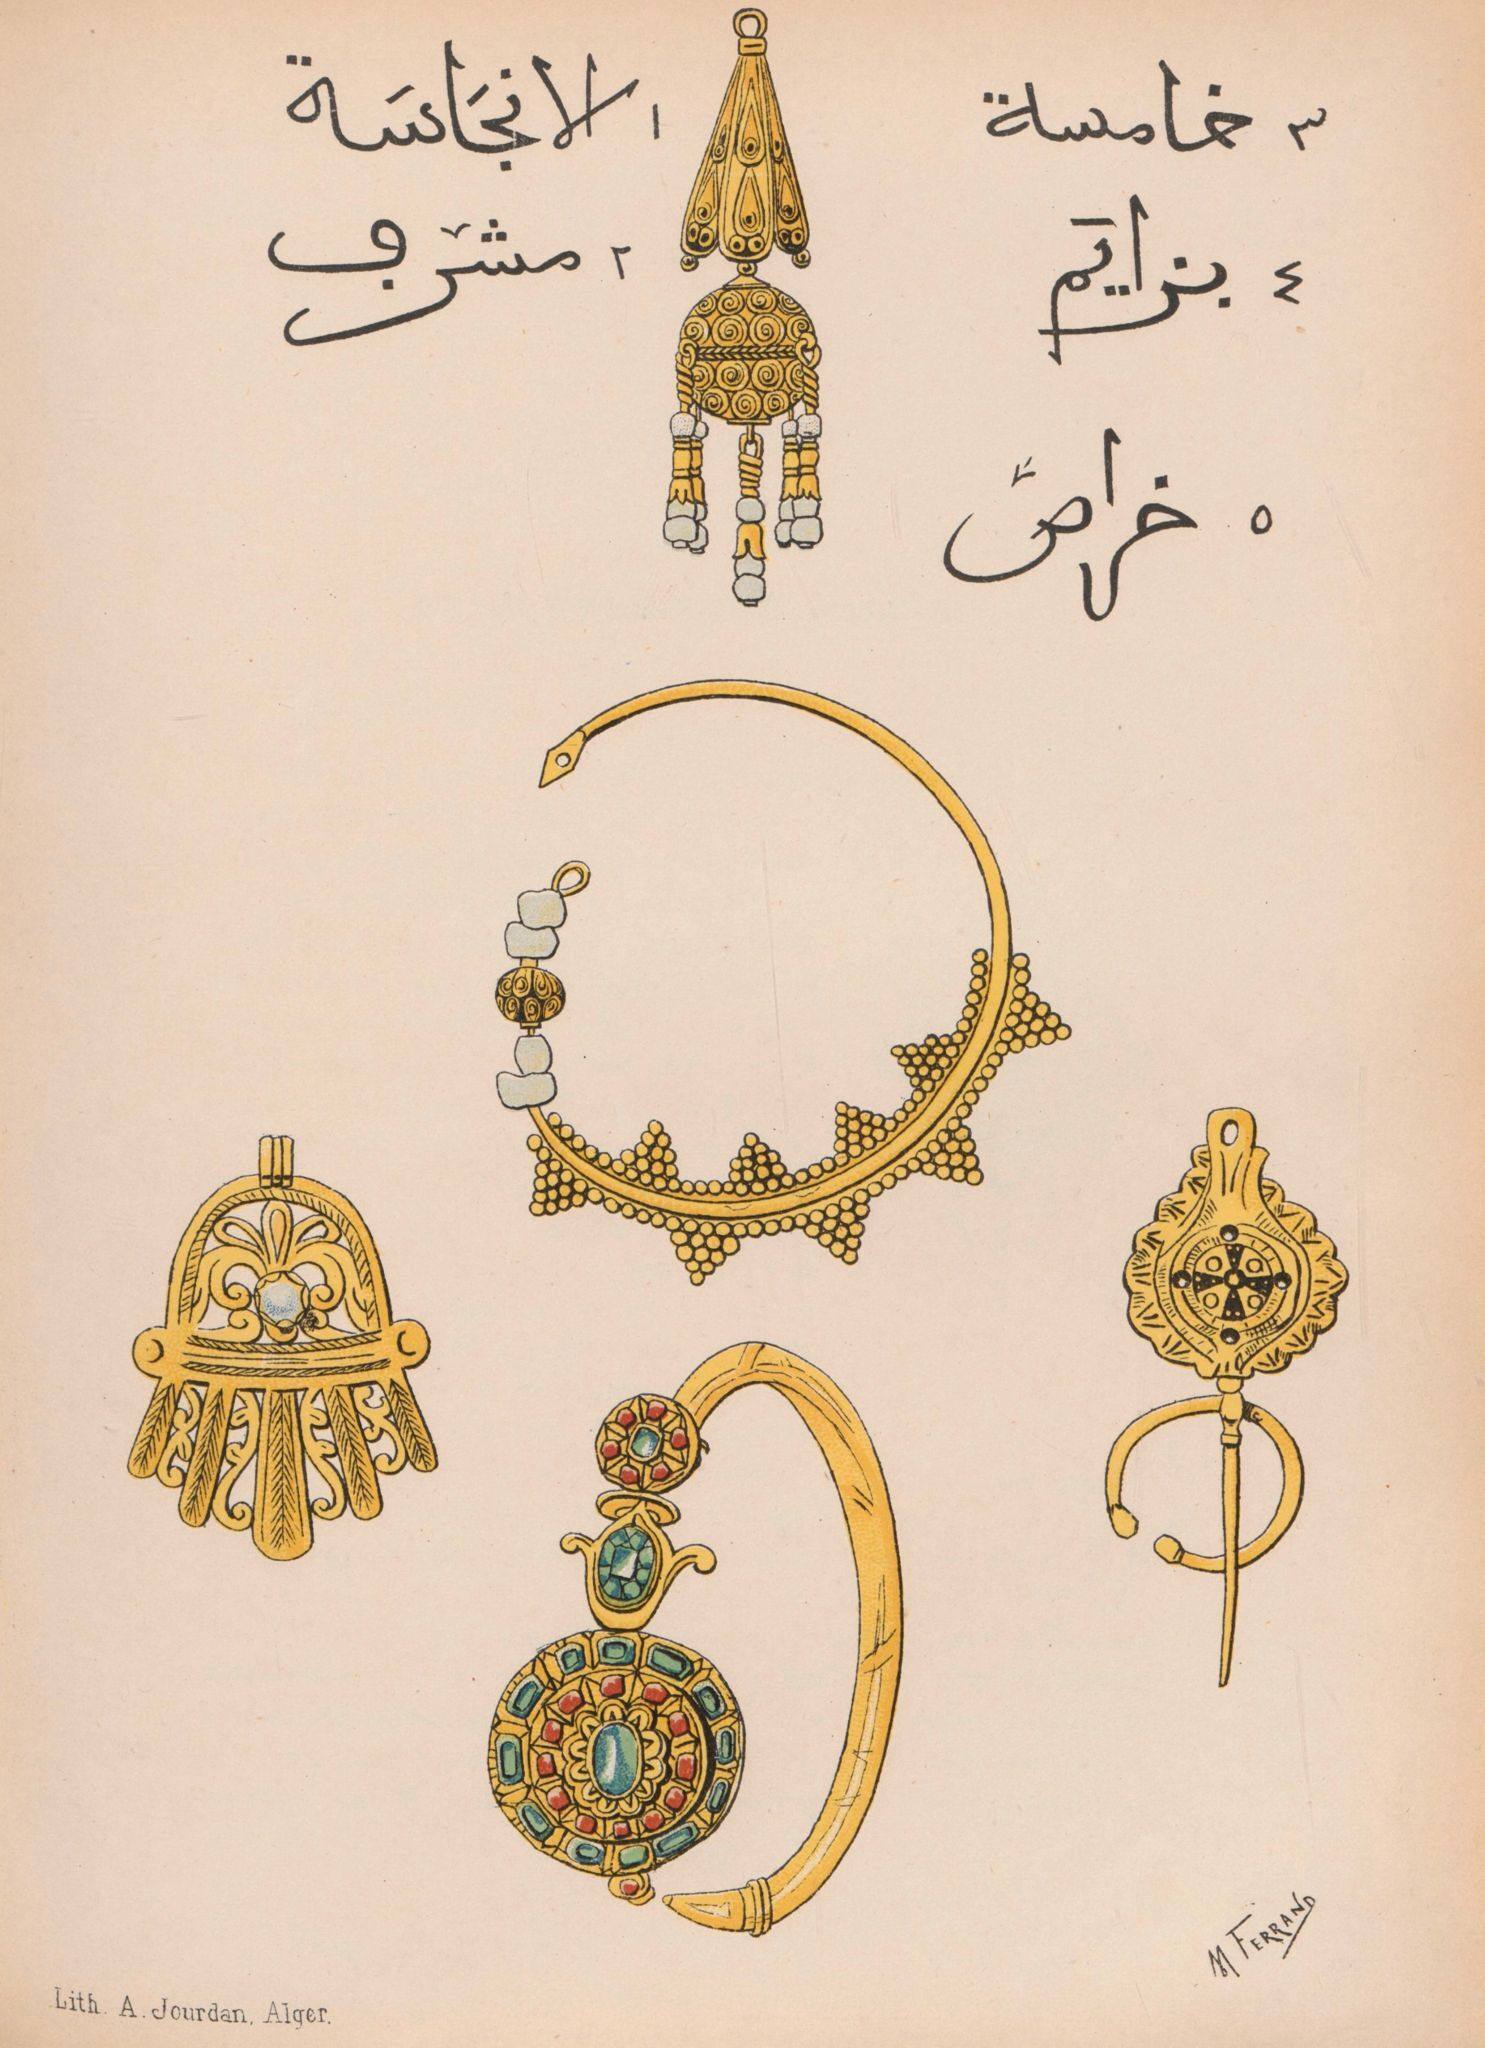 ١ الانجَاسَة
٢ مشرّف
٣ خامسة
٤ بزايَم
٥ خراصّ
M FERRAND
Lith. A. Jourdan, Alger.